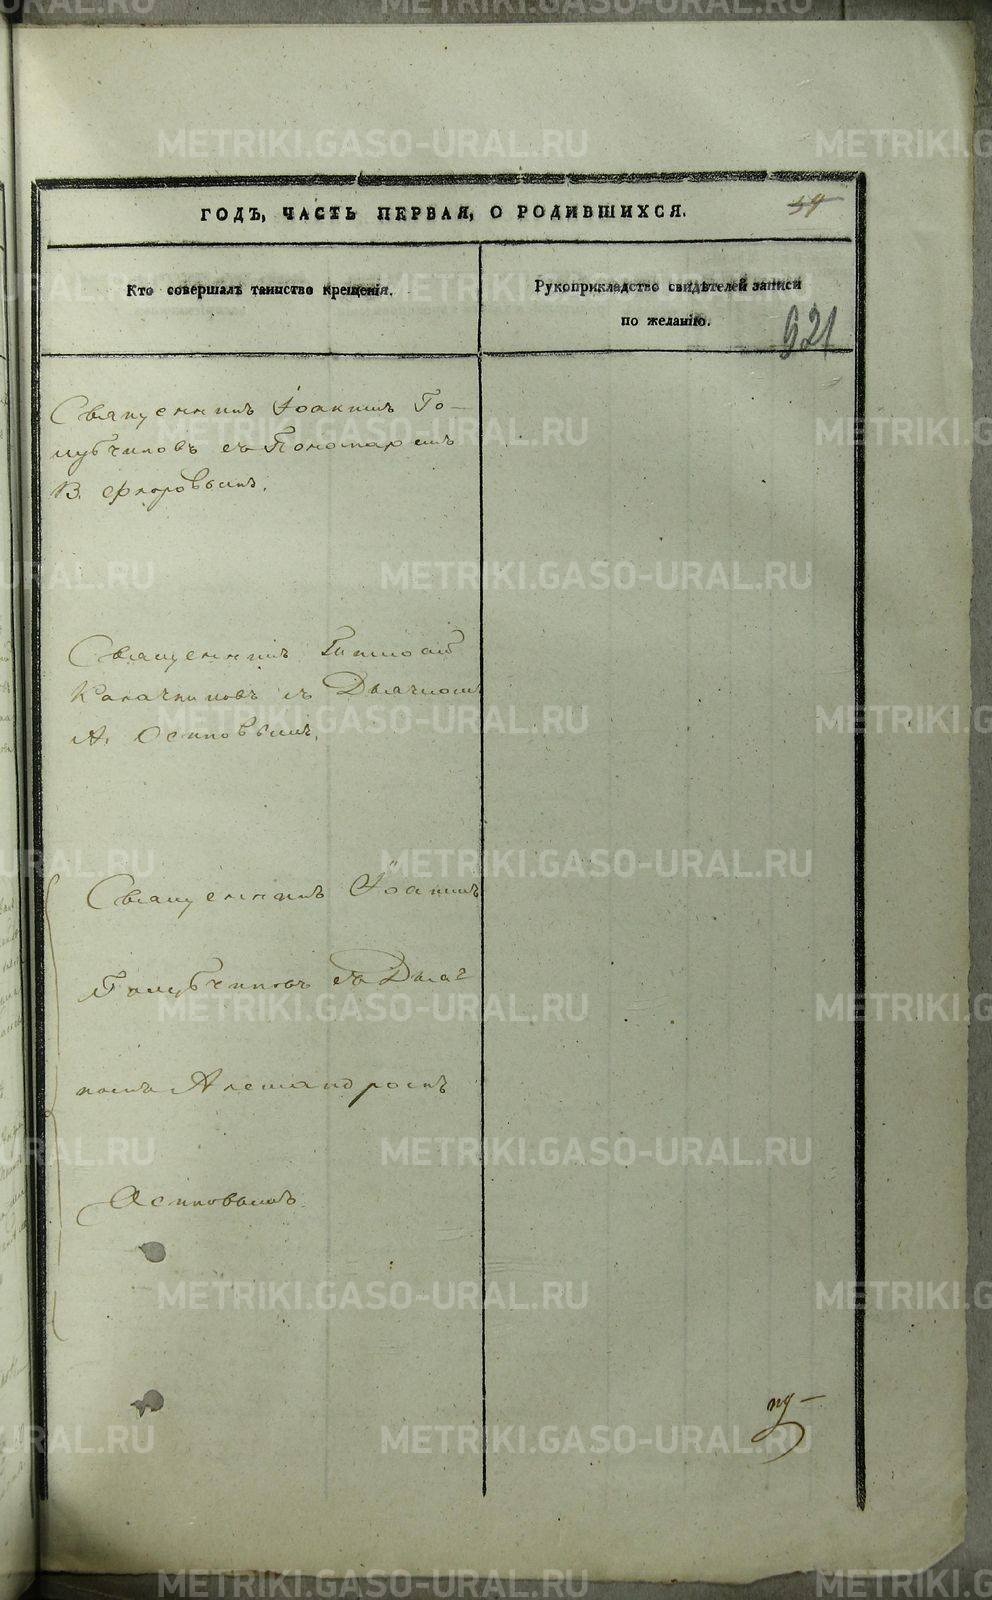 ГОДЪ, ЧАСТЬ ПЕРВАЯ, О РОДИВШИХСЯ.
Кто совершалъ таинство крещенія.
Рукоприкладство свидѣтелей записи
по желанію.
621
Священникъ Іоакимъ Го-
лубчиковъ съ Пономаремъ
В. Флоровымъ.
Священникъ
Калачниковъ съ Дьячкомъ
А. Осиповымъ.
Священникъ Іоакимъ
Голубчиковъ съ Дьяч
комъ Александромъ
Осиповымъ
METRIKI.GASO-URAL.RU